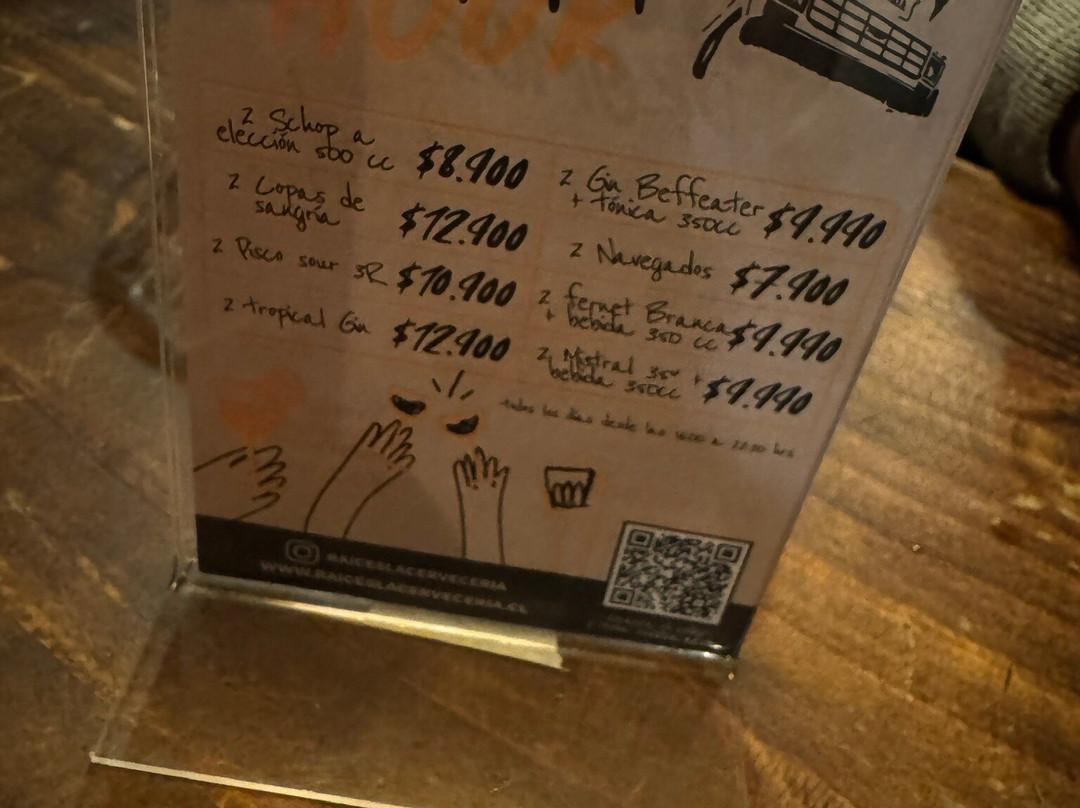 HOUR
2 Schop a
elección 500 cc $8.900
2 Copas de
sangría $12.900
2 Pisco sour 3R $10.900
2 tropical Gin $12.900
2 Gin Beffeater
+ tónica 350cc $9.990
2 Navegados $7.900
2 fernet Branca
+ bebida 350 cc $9.990
2 Mistral 35° +
bebida 350cc $9.990
todos los días desde las 16:00 a 22:00 hrs
RAICESLACERVECERIA
WWW.RAICESLACERVECERIA.CL